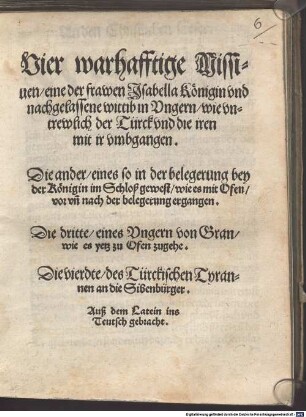 6
Vier warhafftige Missi-
uen/ eine der frawen Isabella Königin vnd
nachgelassene wittib in Vngern/ wie vn-
trewlich der Türck vnd die iren
mit ir vmbgangen.
Die ander/ eines so in der belegerung bey
der Königin im Schloß gewest/ wie es mit Ofen/
vor vñ nach der belegerung ergangen.
Die dritte/ eines Vngern von Gran/
wie es yetz zu Ofen zugehe.
Die vierdte/ des Türckischen Tyran-
nen an die Sibenbürger.
Auß dem Latein ins
Teutsch gebracht.